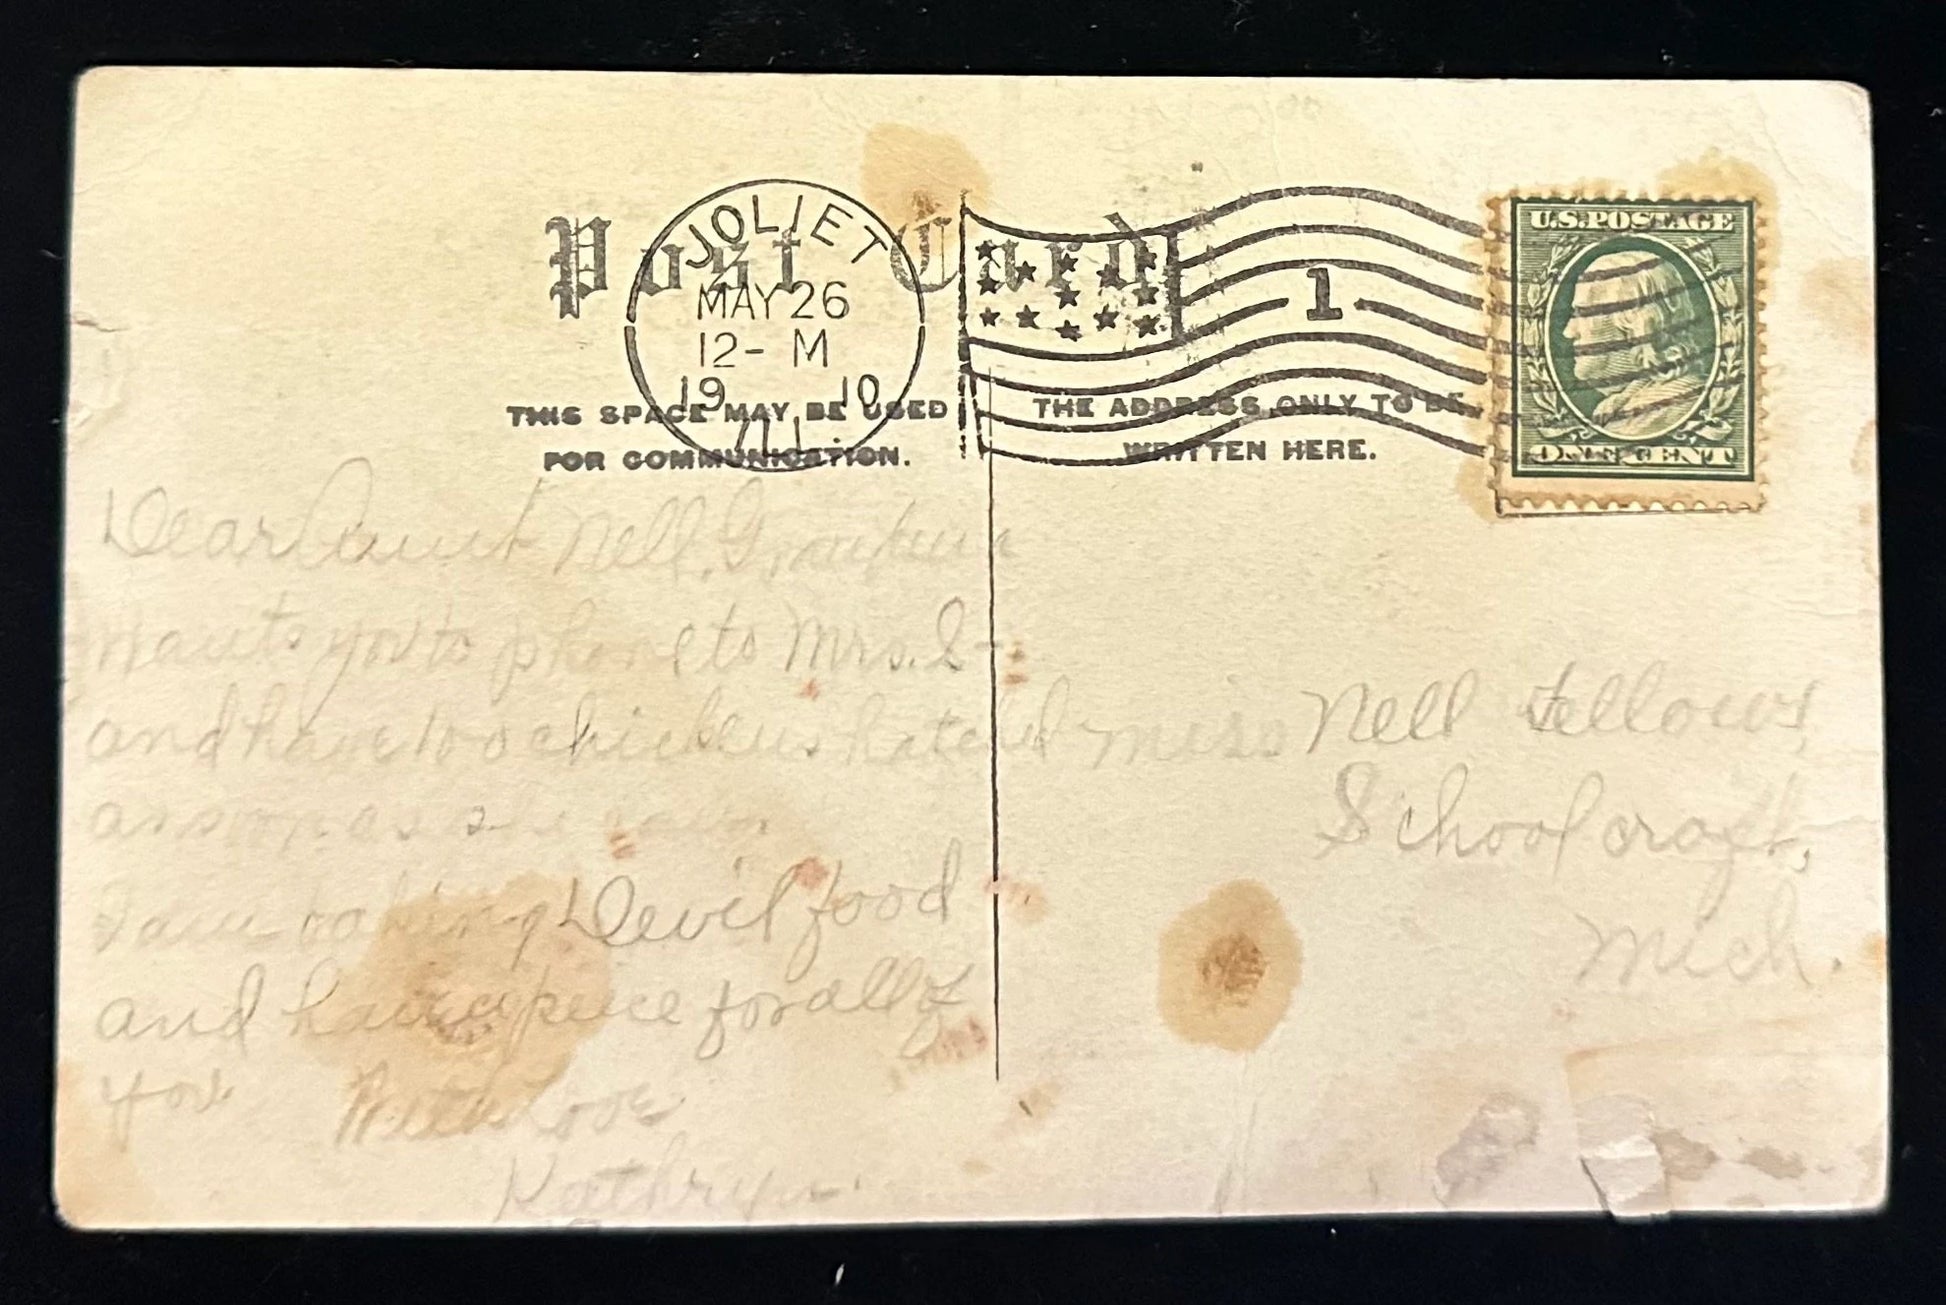 Post Card
JOLIET
MAY 26
12- M
19 10
ILL.
1
U.S. POSTAGE
ONE CENT
THIS SPACE MAY BE USED
FOR COMMUNICATION.
THE ADDRESS ONLY TO BE
WRITTEN HERE.
Dear Aunt Nell. Grandma
wants you to phone to Mrs. S-
and have 100 chickens hatched
as soon as she can.
I am baking Devil food
and have a piece for all of
you
With Love
Kathryn.
Miss Nell Fellows,
Schoolcraft,
Mich.